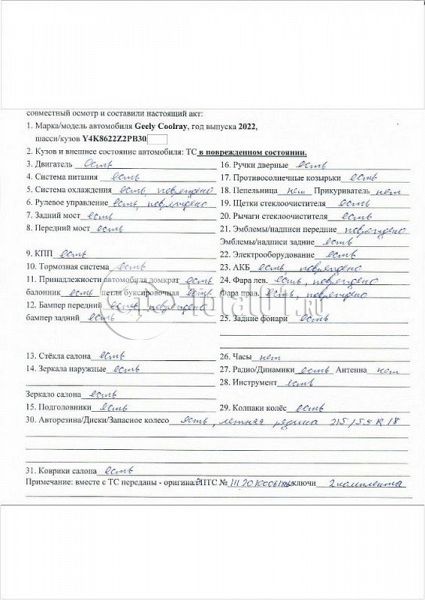 совместный осмотр и составили настоящий акт:
1. Марка/модель автомобиля Geely Coolray, год выпуска 2022,
шасси/кузов Y4K8622Z2PB30
2. Кузов и внешнее состояние автомобиля: ТС в поврежденном состоянии.
3. Двигатель есть
16. Ручки дверные есть
4. Система питания есть
17. Противосолнечные козырьки есть
5. Система охлаждения есть, повреждено
18. Пепельница нет Прикуриватель нет
6. Рулевое управление есть, повреждено
19. Щетки стеклоочистителя есть
7. Задний мост есть
20. Рычаги стеклоочистителя есть
8. Передний мост есть
21. Эмблемы/надписи передние повреждено
Эмблемы/надписи задние есть
9. КПП есть
22. Электрооборудование есть
10. Тормозная система есть
23. АКБ есть, повреждено
11. Принадлежности автомобиля домкрат есть
24. Фара лев. есть, повреждено
балонник есть петля буксировочная есть
Фара прав. есть, повреждено
12. Бампер передний есть, повреждено
бампер задний есть
25. Задние фонари есть
13. Стёкла салона есть
26. Часы нет
14. Зеркала наружные есть
27. Радио/Динамики есть Антенна нет
28. Инструмент есть
Зеркало салона есть
15. Подголовники есть
29. Колпаки колёс есть
30. Авторезина/Диски/Запасное колесо есть, летняя резина 215/55 R 18
31. Коврики салона есть
Примечание: вместе с ТС переданы - оригинал ПТС № ключи 2 комплекта